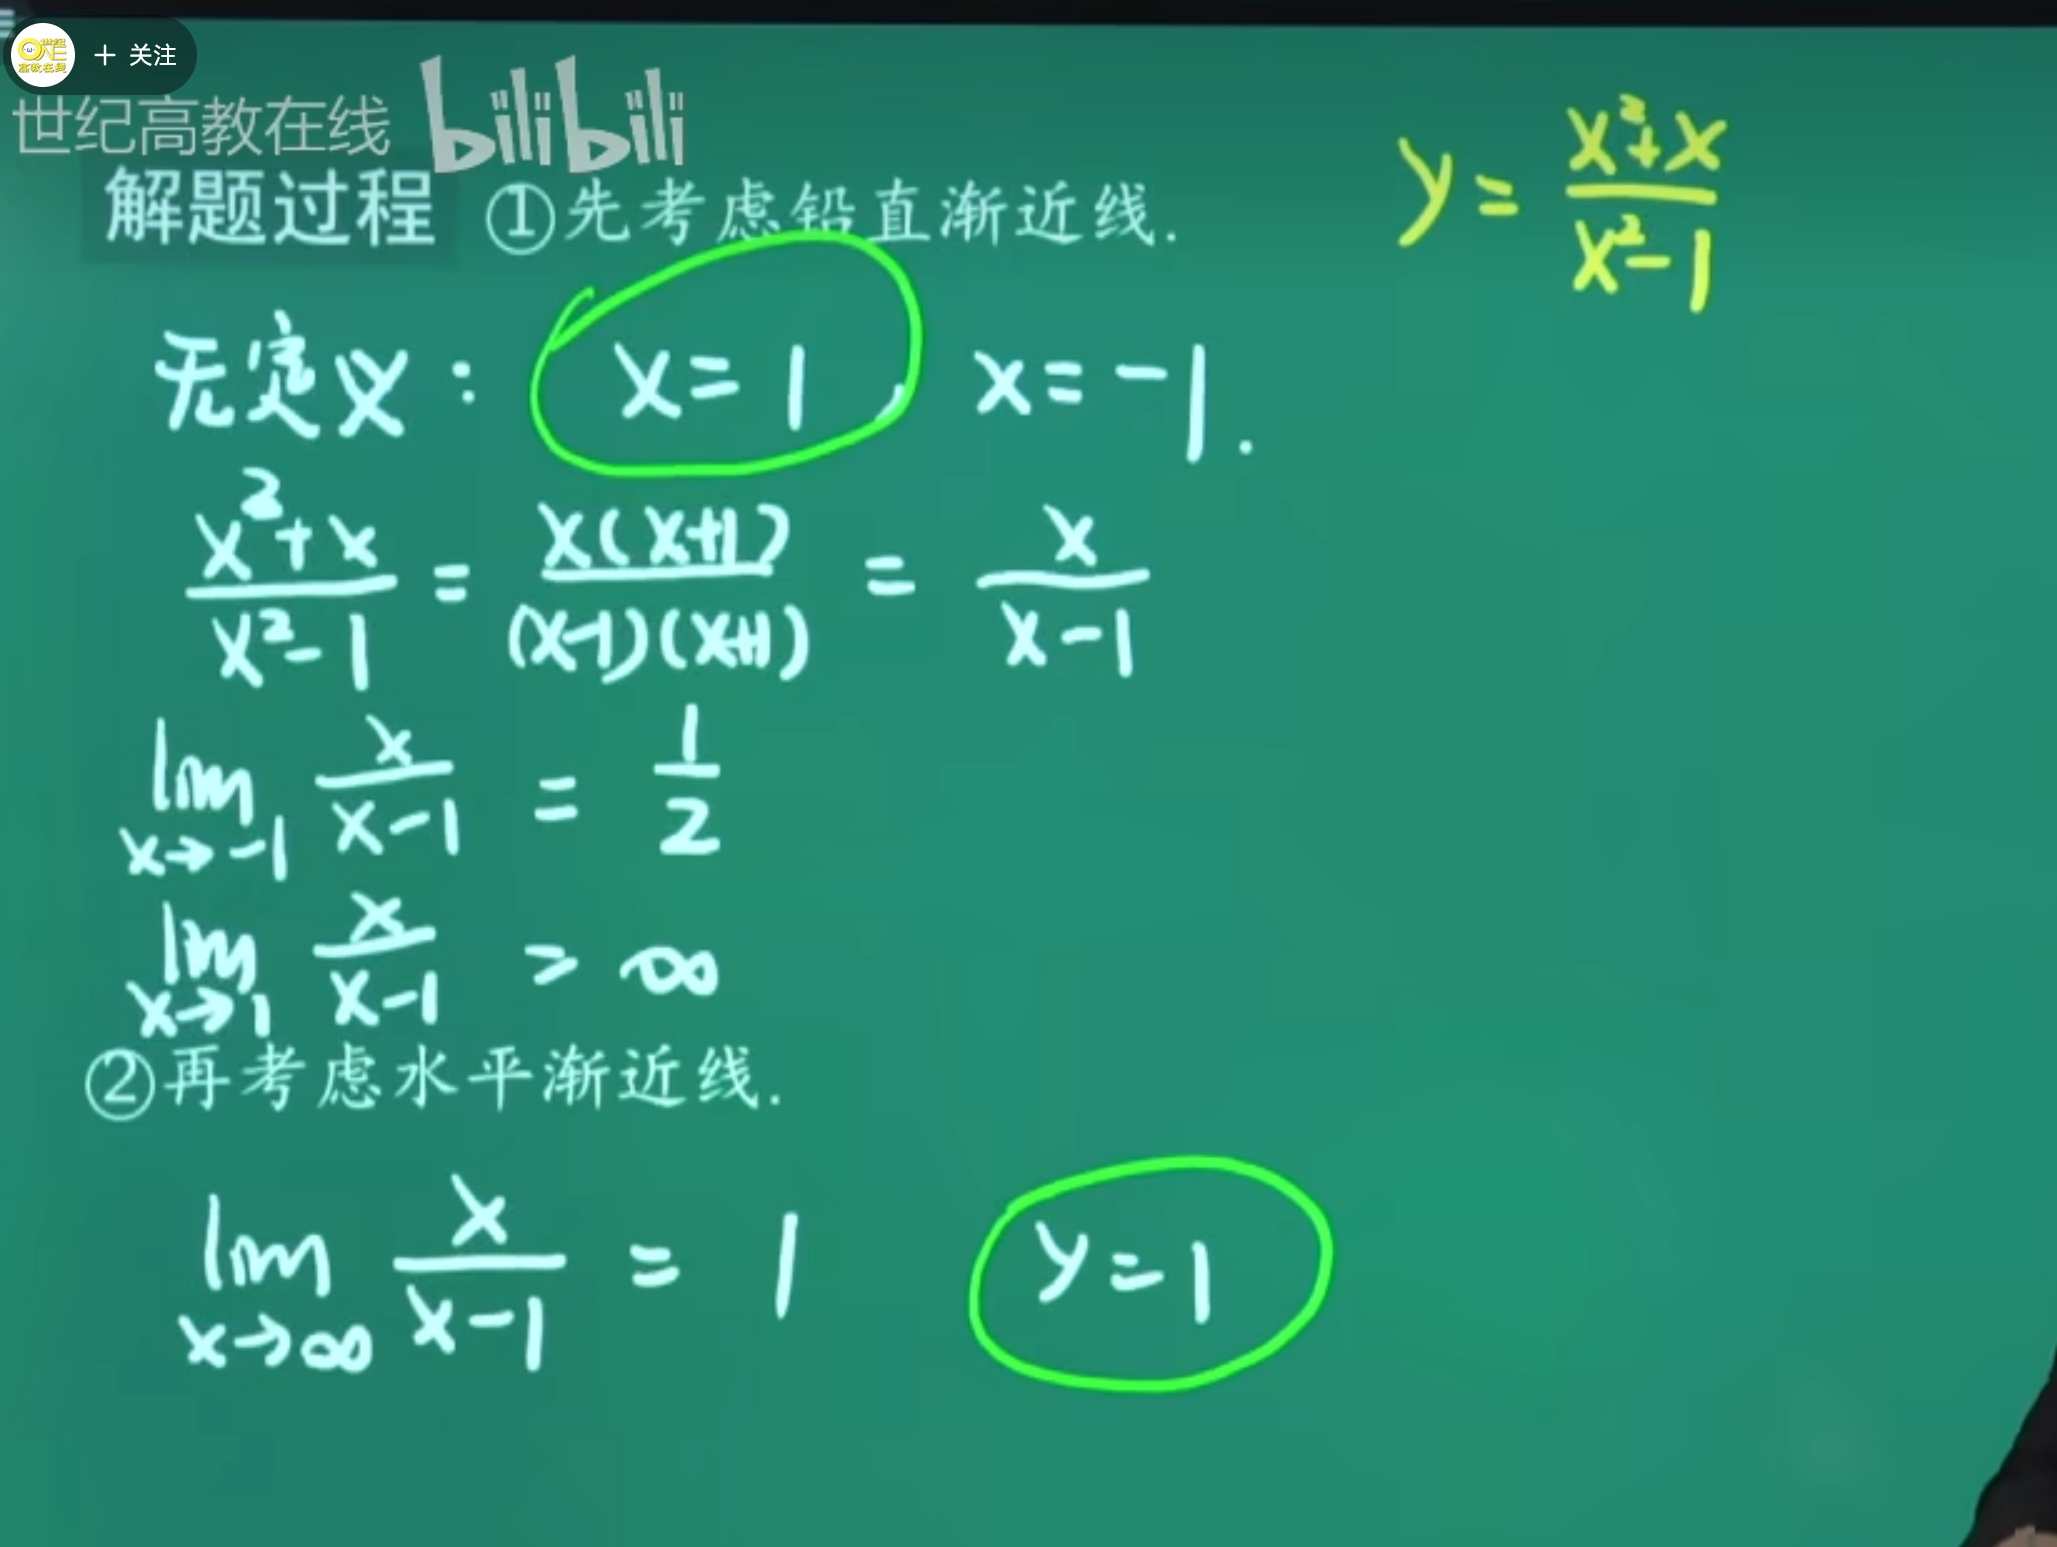 + 关注
世纪高教在线 bilibili
解题过程 ①先考虑铅直渐近线.
y = (x²+x)/(x²-1)
无定义: x=1, x=-1.
(x²+x)/(x²-1) = x(x+1)/((x-1)(x+1)) = x/(x-1)
lim x→-1 x/(x-1) = 1/2
lim x→1 x/(x-1) = ∞
②再考虑水平渐近线.
lim x→∞ x/(x-1) = 1 y=1